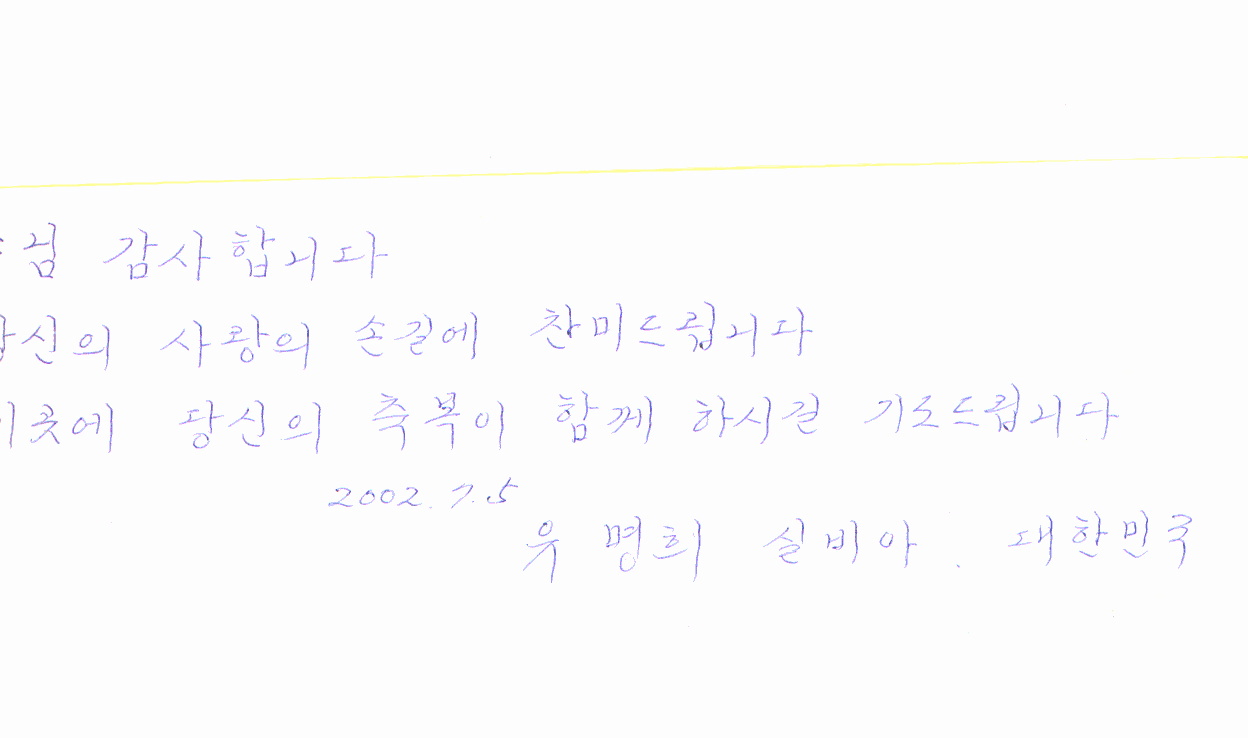 님 감사합니다
당신의 사랑의 손길에 찬미드립니다
이곳에 당신의 축복이 함께 하시길 기도드립니다
2002. 7. 5
우 명희 실비아 . 대한민국